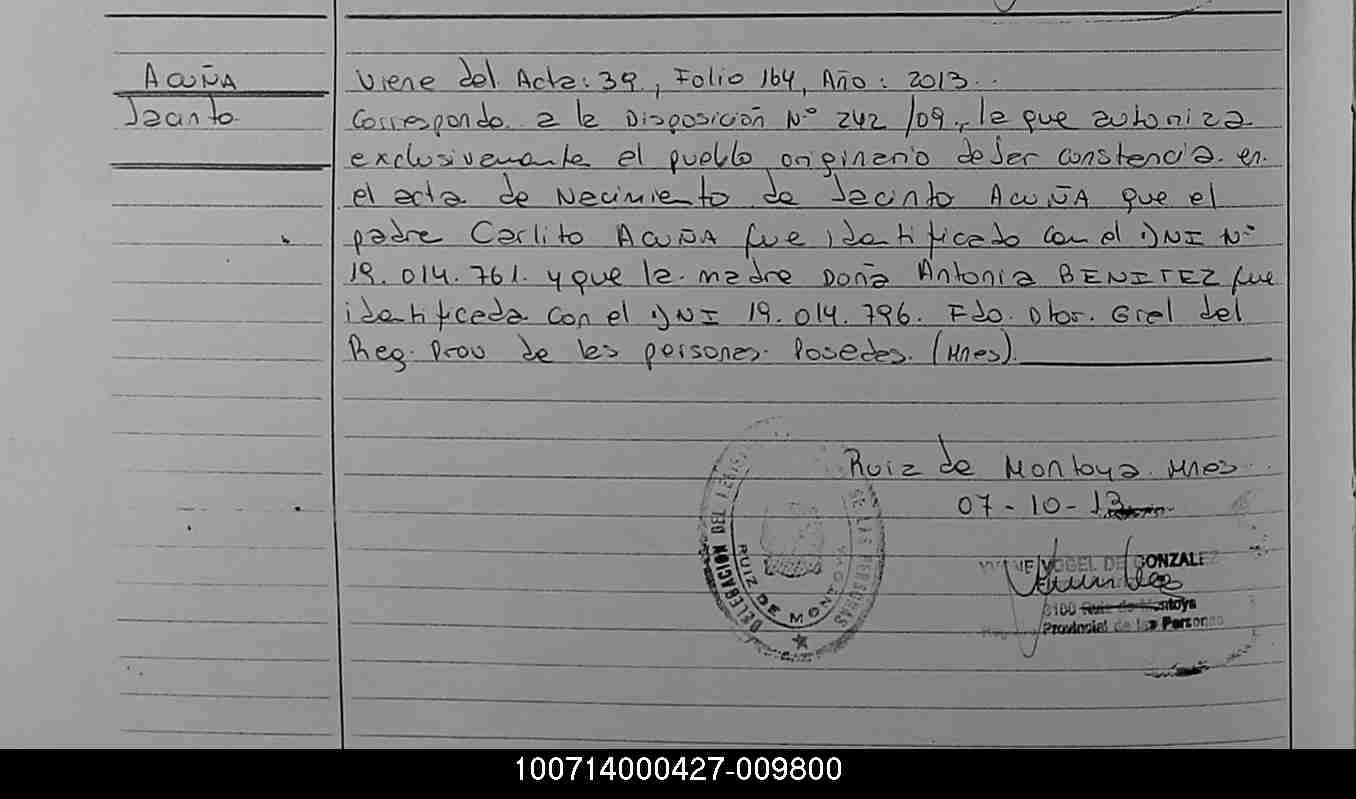 ACUÑA
Jacinto
Viene del Acta: 39, Folio 164, Año: 2013.
Corresponde a la Disposición Nº 242/09, la que autoriza
exclusivamente el pueblo originario dejar constancia en
el acta de Nacimiento de Jacinto ACUÑA que el
padre Carlito ACUÑA fue identificado con el DNI Nº
19.014.761. y que la madre Doña Antonia BENITEZ fue
identificada con el DNI 19.014.796. Fdo. Dtor. Gral del
Reg. Prov de las personas. Posadas. (Mnes).
Ruiz de Montoya. Mnes
07-10-13
DELEGACION DEL REGIS DE LAS PERSONAS
RUIZ DE MONTOYA
VOGEL DE GONZALEZ
3100 Ruiz de Montoya
Provincial de las Personas
100714000427-009800